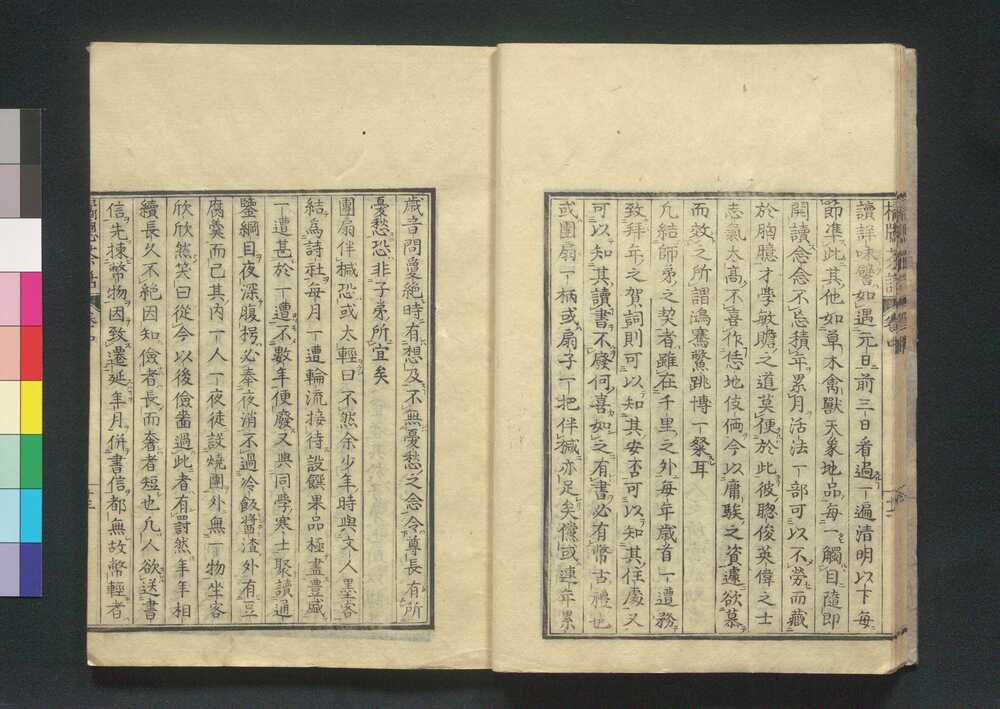 讀詳味譬如遇元日前三日看過一遍清明以下每
節準此其他如草木禽獸天象地品每一觸目隨即
開讀念念不忘積年累月活法一部可以不勞而藏
於胸臆才學敏贍之道莫便於此彼聰俊英偉之士
志氣太高不喜作恁地伎倆今以庸騃之資遽欲慕
而效之所謂鴻騫鱉跳博一粲耳
凡結師弟之契者雖在千里之外每年歲首一遭務
致拜年之賀詞則可以知其安否可以知其住處又
可以知其讀書不廢何喜如之有書必有幣古禮也
或團扇一柄或扇子一把伴槭亦足矣儻或連年累
歲音問夐絕時有想及不無憂愁之念令尊長有所
憂愁恐非子弟所宜矣
團扇伴槭恐或太輕曰不然余少年時與文人墨客
結為詩社每月一遭輪流接待設饌果品極盡豐盛
一遭甚於一遭不數年便廢又與同學寒士聚讀通
鑒綱目夜深腹枵必奉夜消不過冷飯醬渣外有豆
腐羹而已其內一人一夜徒設燒團外無一物坐客
欣欣然笑曰從今以後儉嗇過此者有罰然年年相
續長久不絕因知儉者長而奢者短也凡人欲送書
信先揀幣物因致遷延年月併書信都無故幣輕者
橘牕茶話
卷中
十三